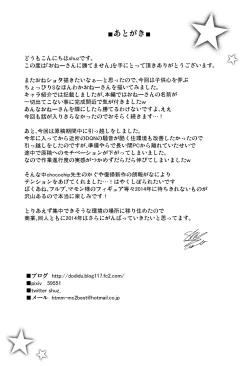 ■あとがき■
どうもこんにちはshuzです。
この度は「おねーさんに勝てません」を手にとって頂きありがとうございます。
またおねショタ描きたいなぁ…と思ったので、今回は子供心を弄ぶ
ちょっぴりSなほんわかおねーさんを描いてみました。
キャラ紹介では記載しましたが、本編ではおねーさんの名前が
一切出てこない事に完成間近で気が付きましたw
みんなおねーさんなら勝てなくなるわけないですよ、ええ
今回も話が入りきらなかったのでおそらく続きます…！
あと、今回は原稿期間中に引っ越しをしました。
今年に入ってから近所のDQNの騒ぐ住環境も改善したかったので
引っ越しをしたのですが、準備やらで長い間PCから離れていたせいで
途中で原稿へのモチベーションが下がってしまいました。
なので作業進行度の実感がつかめずだらだら伸びてしまいましたw
あとchocochip先生のかぐや復活新作の朗報がなにより
テンションをあげてくれました…！はやくしぼられたいです
ぼくあね、フルプ、マモン様のフィギュア等々2014年に待ちきれないものが
沢山あるので本当に楽しみです！
とりあえず集中できそうな環境の場所に移り住めたので
商業、同人ともに2014年はさらにがんばっていきたいと思ってます。
■ブログ http://dodidu.blog117.fc2.com/
■pixiv 59551
■twitter shuz_
■メール